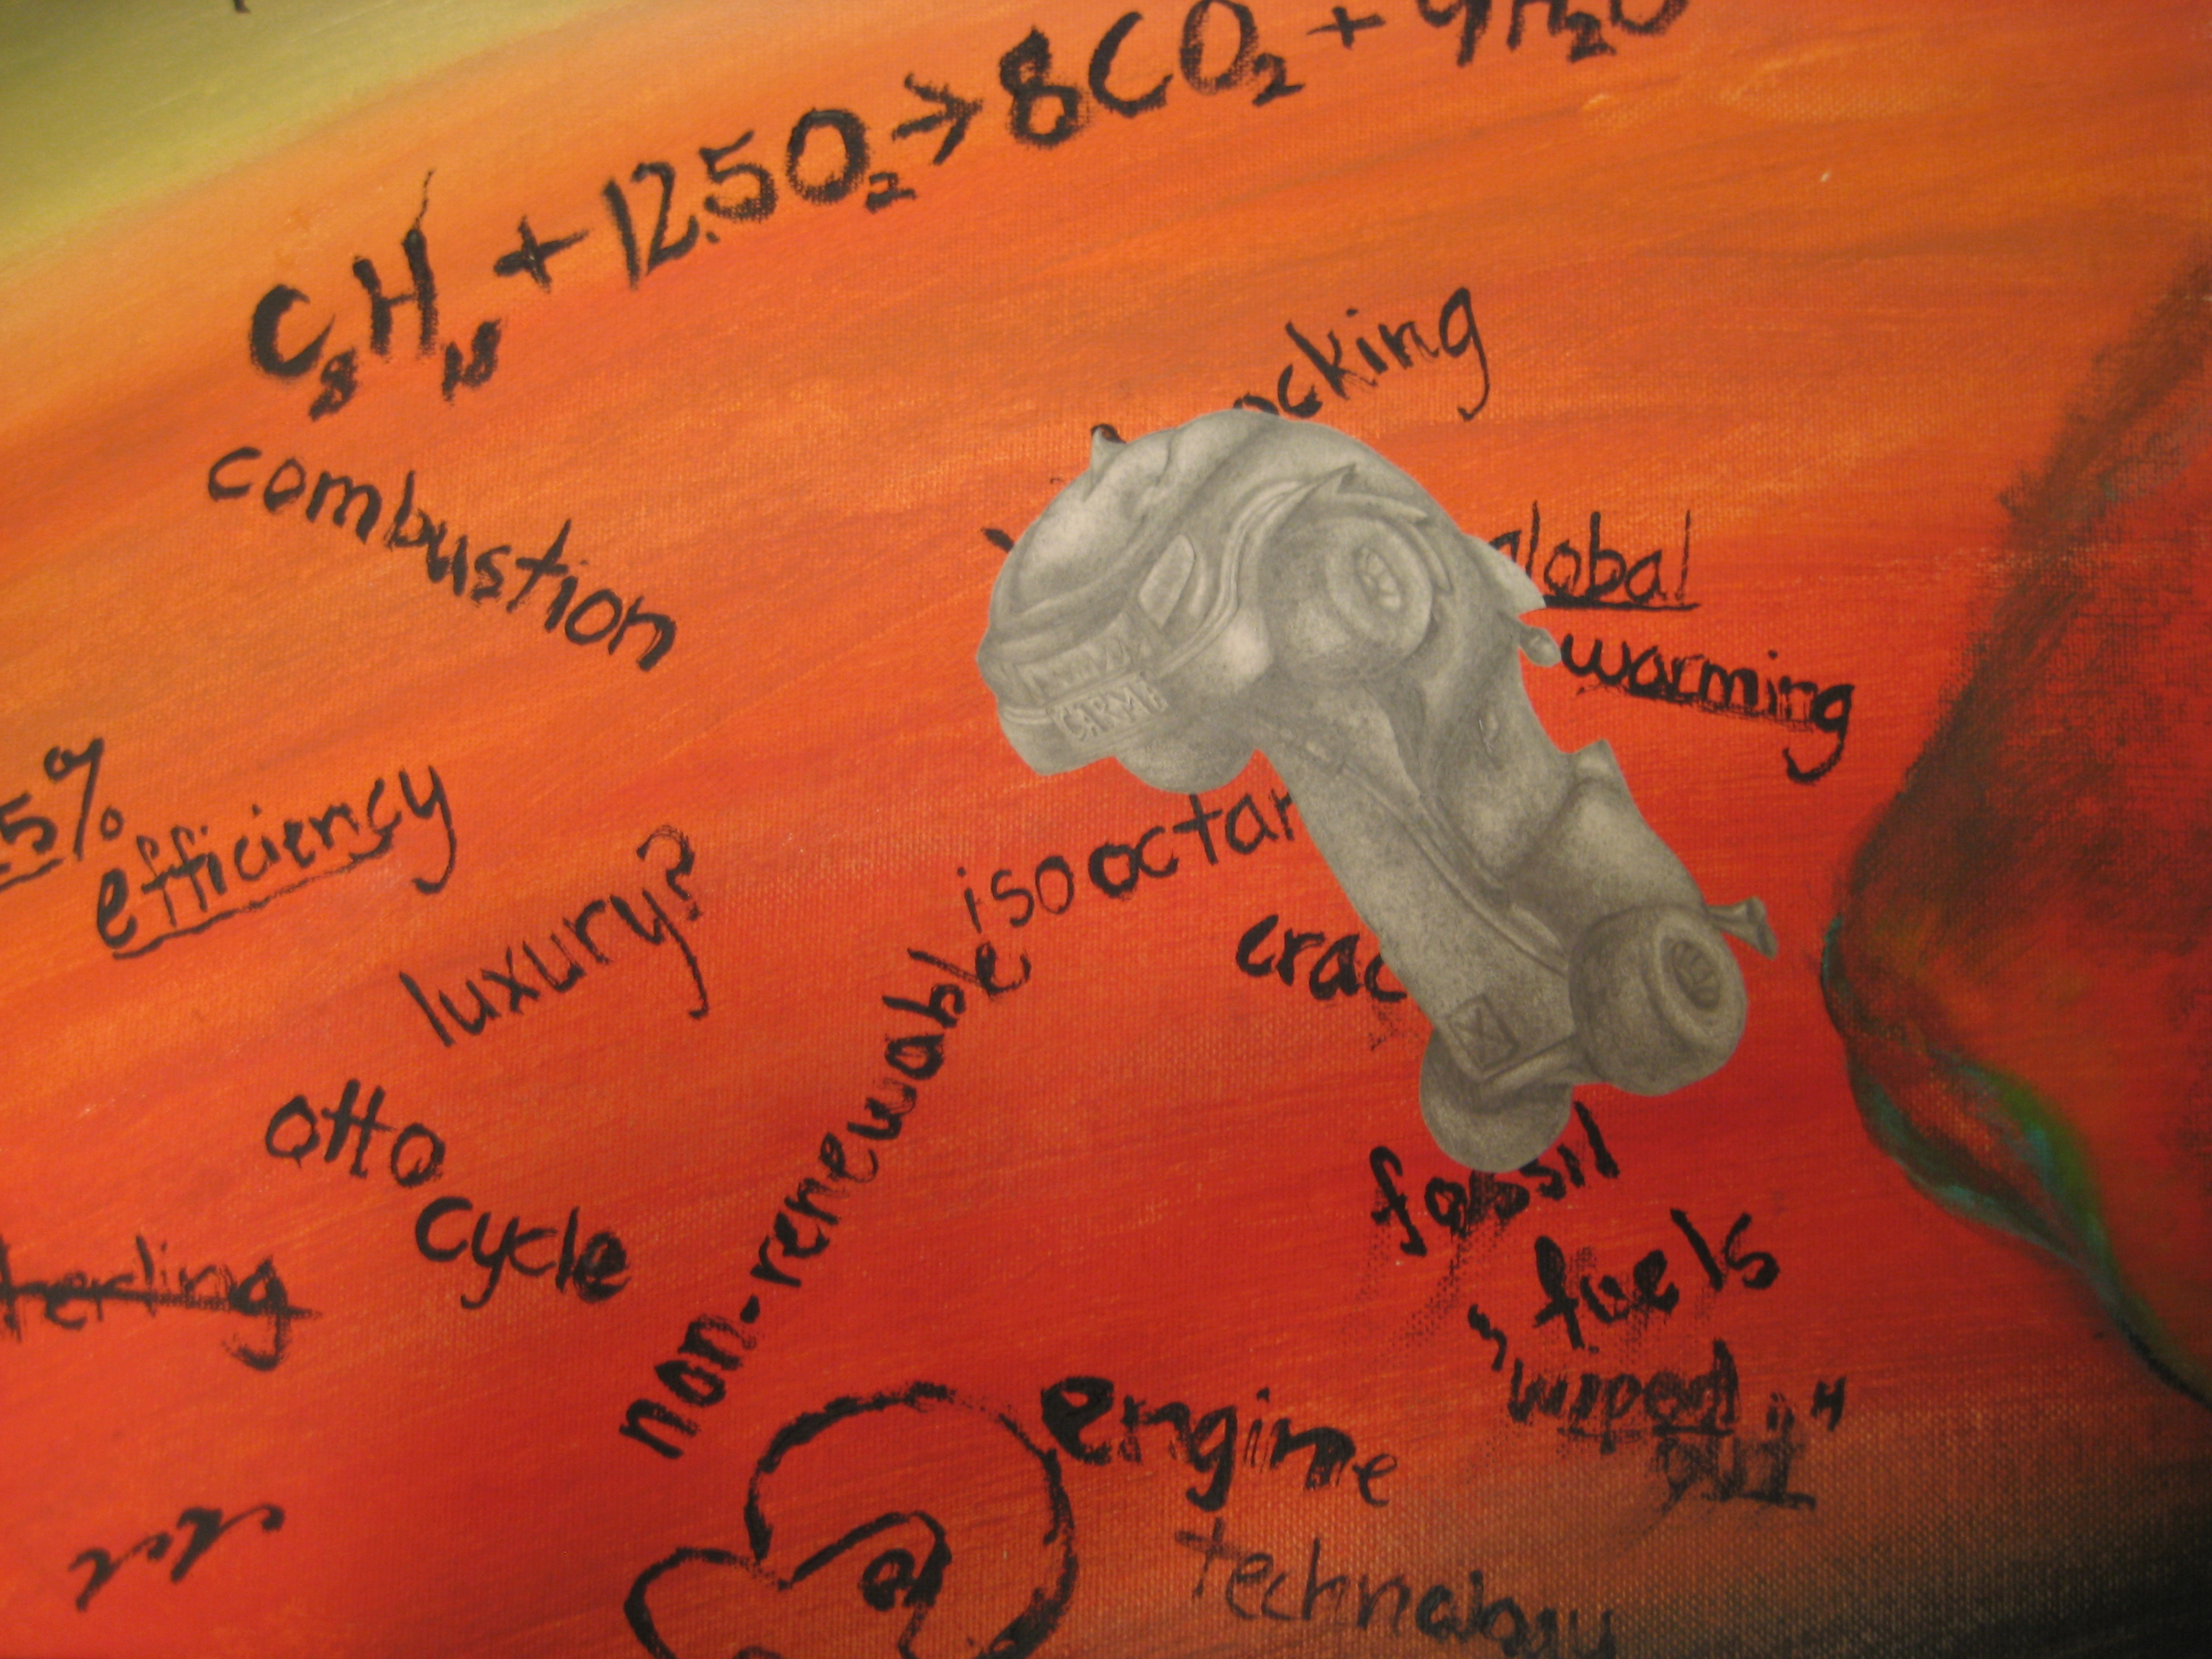 C8H18 + 12.5O2 → 8CO2 + 9H2O
combustion
ocking
global
warming
5%
efficiency
luxury?
isooctan
crac
non-renewable
otto
cycle
fossil
fuels
"wiped
out"
engine
technology